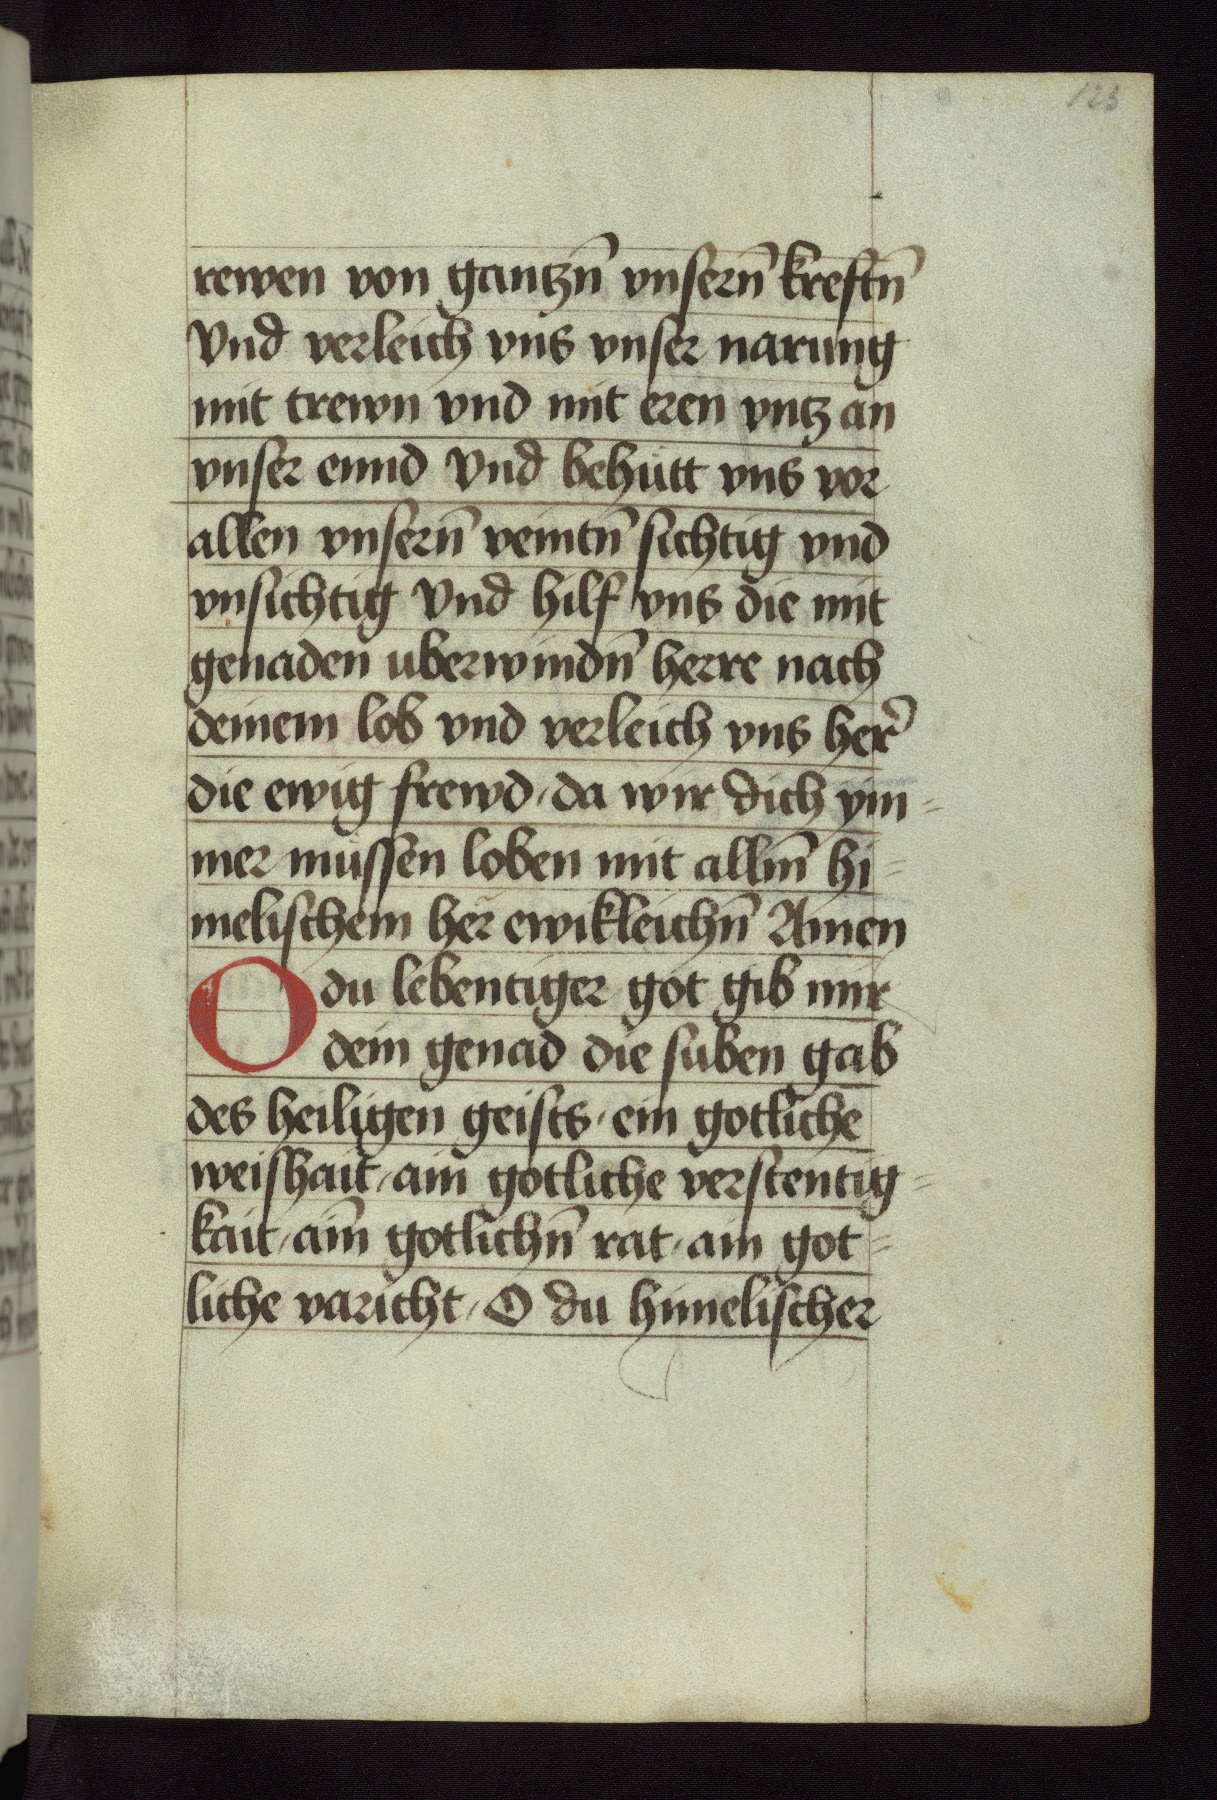 123
rewen von gantzn̄ vnsern̄ kreftn̄
Vnd verleich vns vnser narung
mit trewn vnd mit eren vntz an
vnser ennd Vnd behütt vns vor
allen vnsern̄ veintn̄ sichtig vnd
vnsichtig Vnd hilf vns die mit
genaden uberwindn̄ herre nach
deinem lob vnd verleich vns her̄
die ewig frewd / da wir dich ym=
mer müssen loben mit allm̄ hi=
melischem her ewikleichn̄ Amen
O du lebentiger got gib mir
dein genad die suben gab
des heiligen geists / ein gotliche
weishait / ain gotliche verstentig=
kait / aīn gotlichn̄ rat / ain got=
liche varicht / O du himelischer